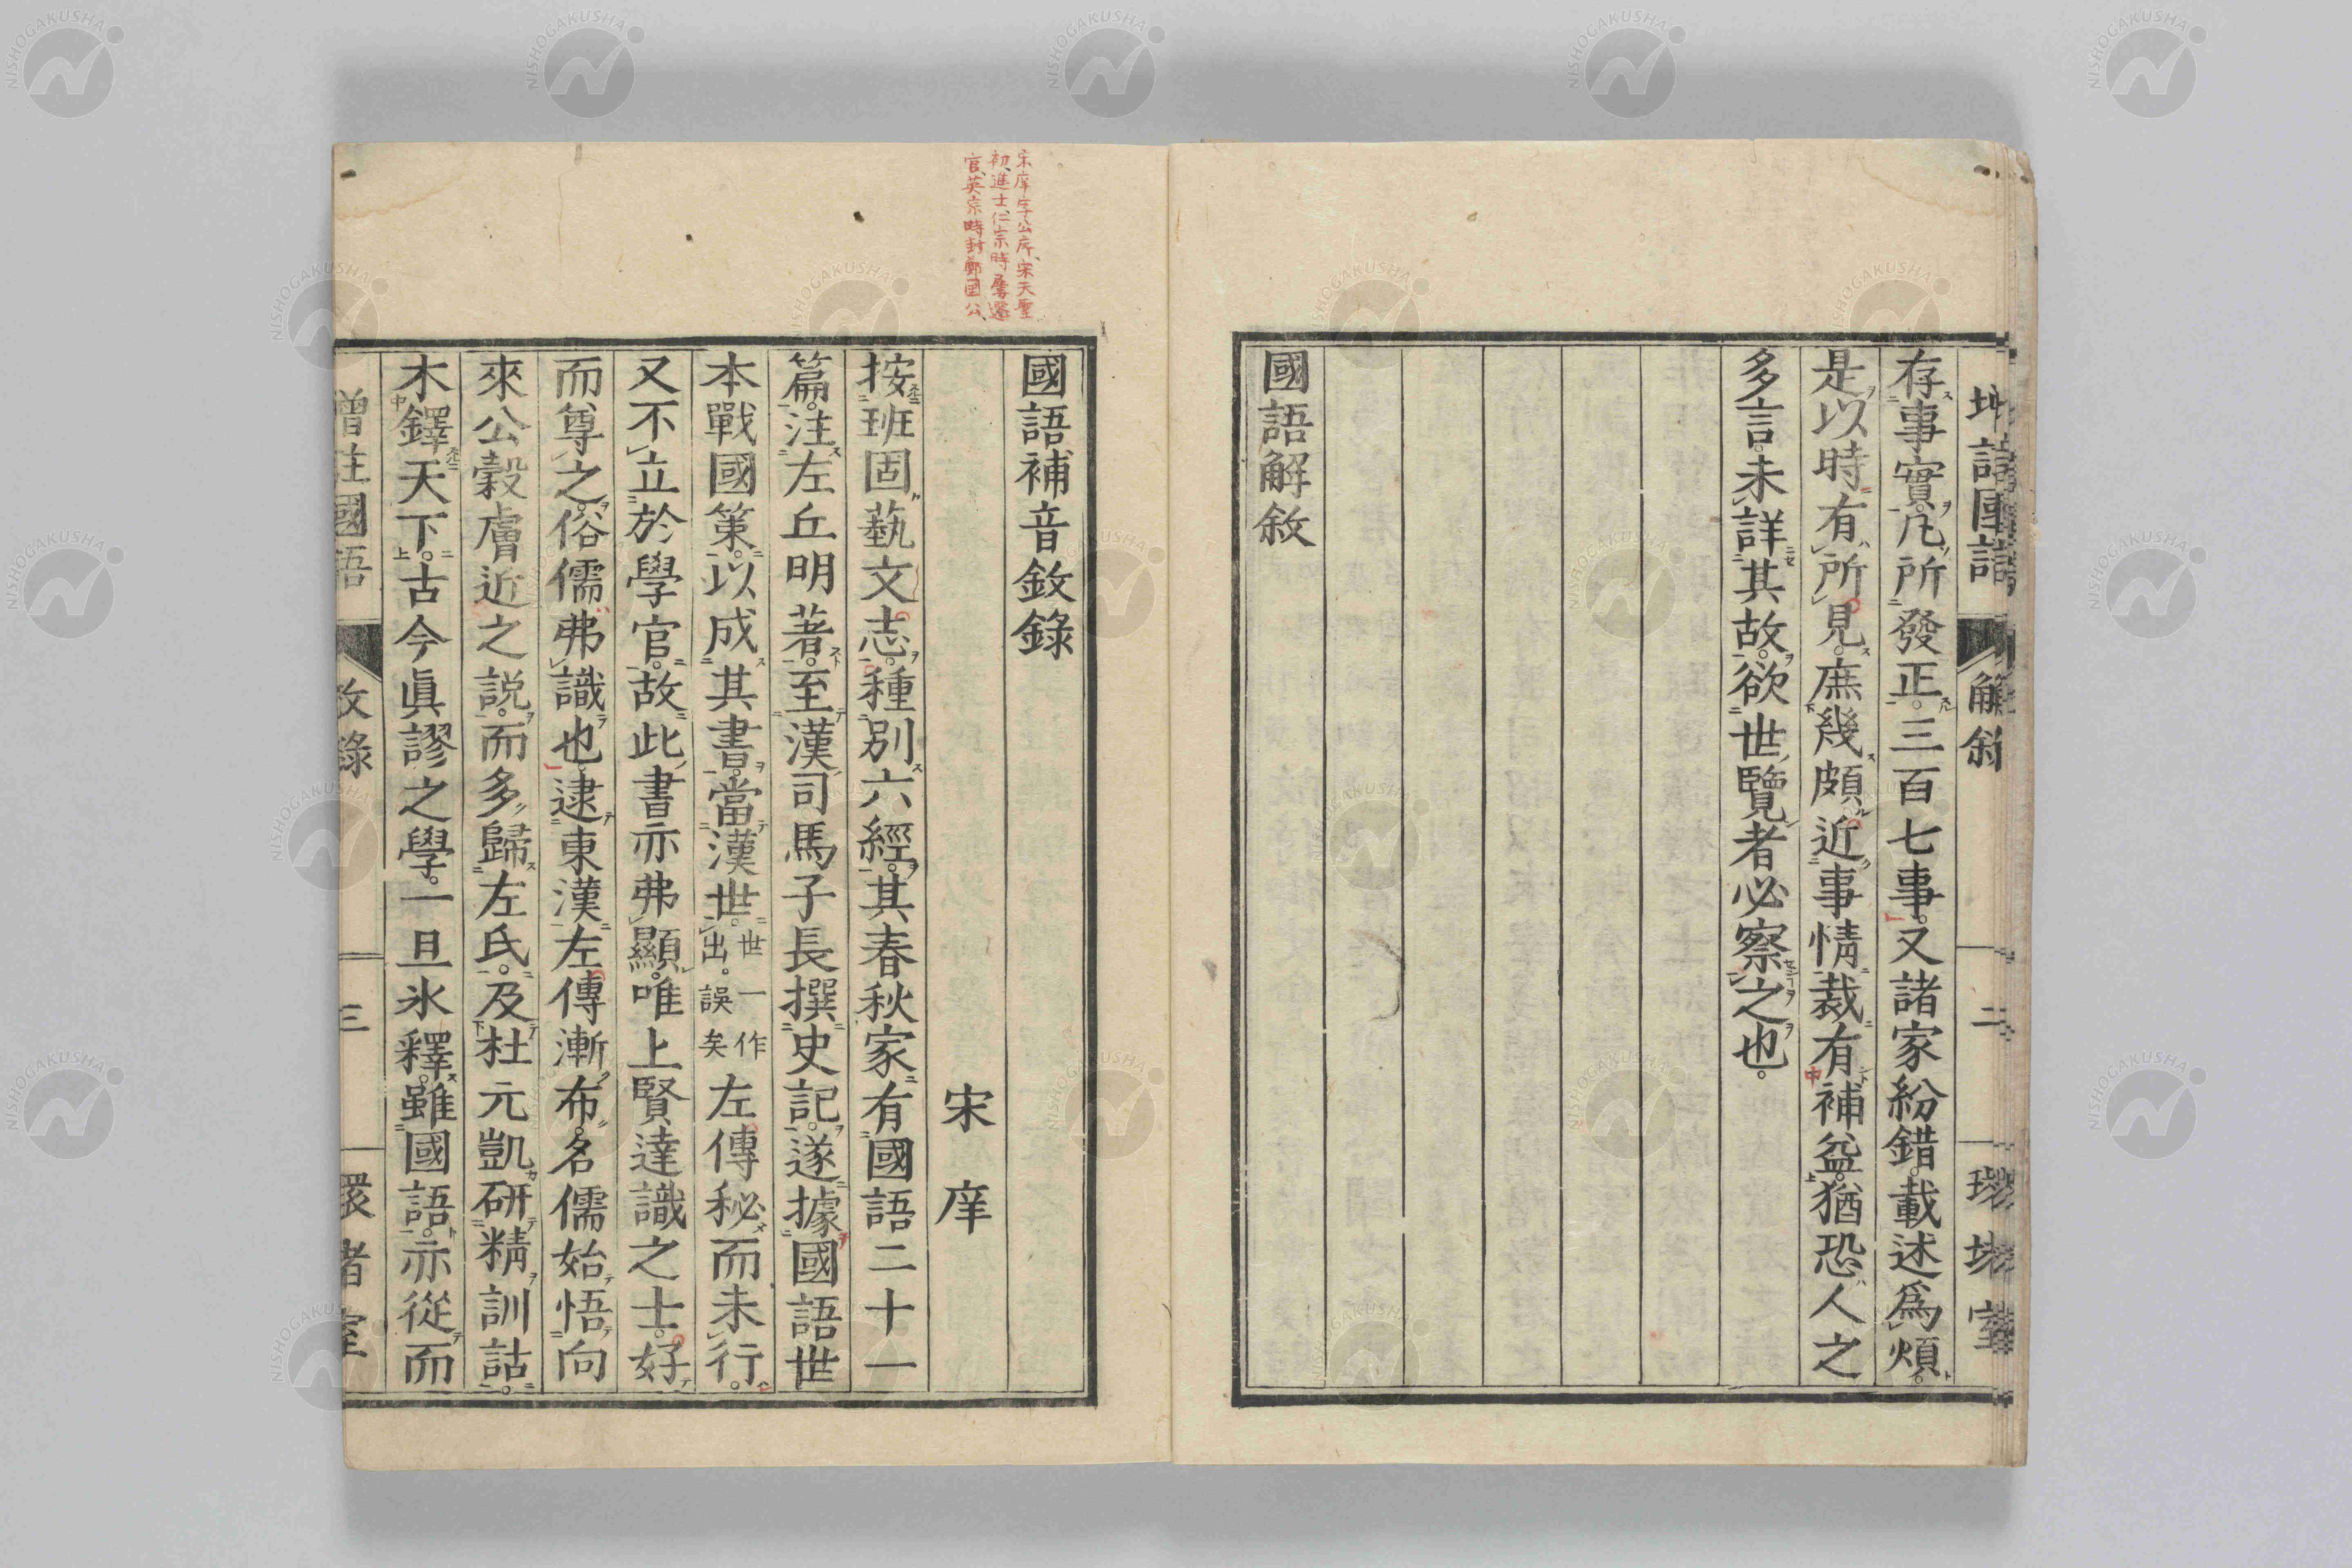 存事實。凡所發正。三百七事。又諸家紛錯。載述爲煩。
是以時有所見。庶幾頗近事情。裁有補益。猶恐人之
多言。未詳其故。欲世覽者必察之也。
國語解敘
解敘
二
宋庠字公序、宋天聖
初、進士、仁宗時屢遷
官、英宗時封鄭国公、
國語補音敘錄
宋庠
按班固藝文志。種別六經。其春秋家有國語二十一
篇。注左丘明著。至漢司馬子長撰史記。遂據國語世
本戰國策。以成其書。當漢世。世一作出。誤矣左傳秘而未行。
又不立於學官。故此書亦弗顯。唯上賢達識之士。好
而尊之。俗儒弗識也。逮東漢左傳漸布。名儒始悟向
來公穀膚近之説。而多歸左氏。及杜元凱研精訓詁。
木鐸天下。古今眞謬之學。一旦氷釋。雖國語。亦從而
增注國語
敘錄
三
環堵室
NISHOGAKUSHA